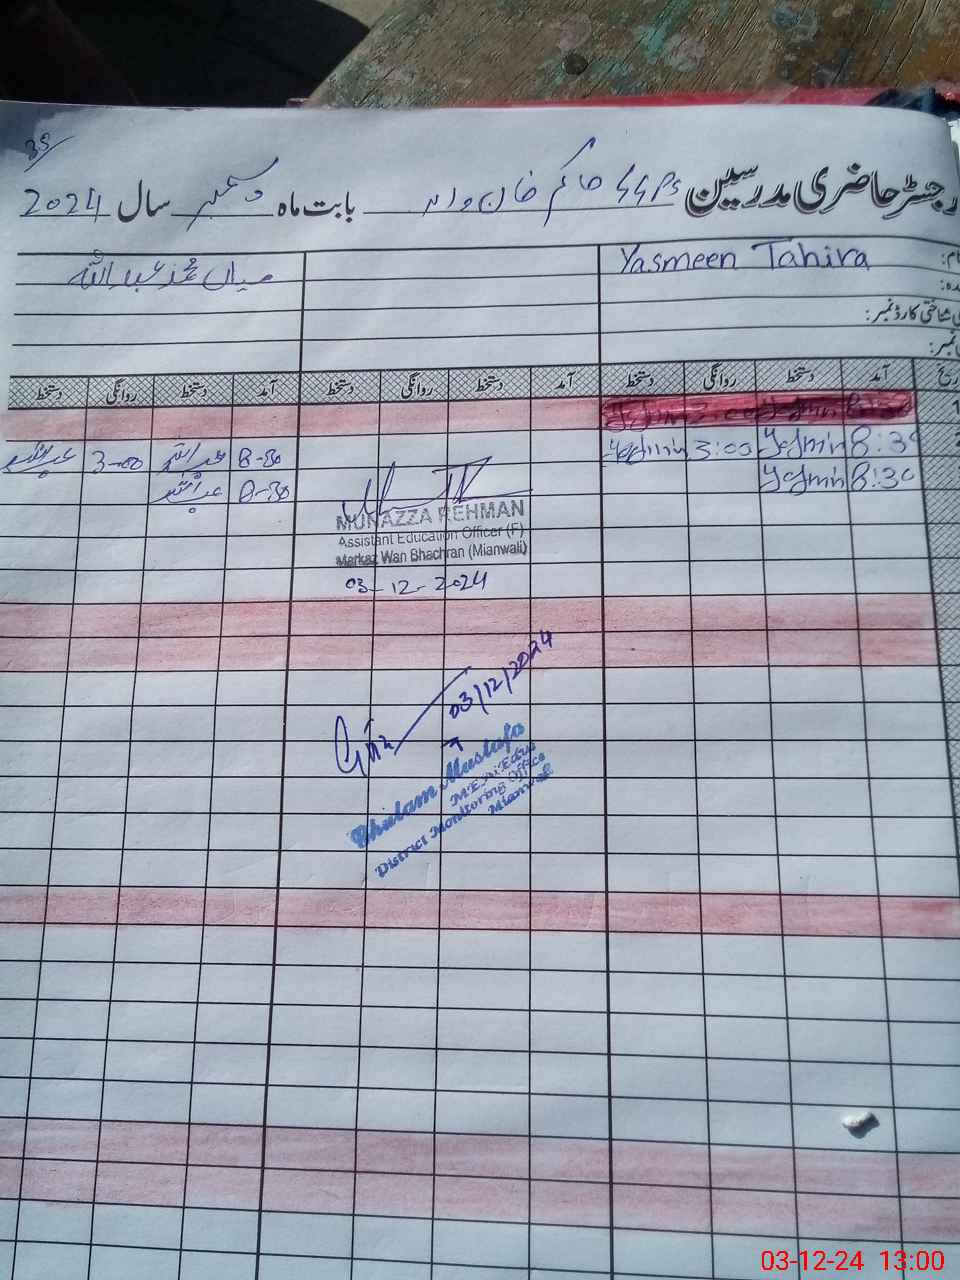 39
رجسٹر حاضری مدرسین GGPS حاکم خان والہ بابت ماہ دسمبر سال 2024
نام: Yasmeen Tahira میاں محمد عبداللہ
عہدہ:
شناختی کارڈ نمبر:
نمبر:
تاریخ آمد دستخط روانگی دستخط آمد دستخط روانگی دستخط آمد دستخط روانگی دستخط
1
2 8:30 Yasmin 3:00 Yasmin 8-30 عبداللہ 3-00 عبداللہ
8:30 Yasmin 8-30 عبداللہ
MUNAZZA REHMAN
Assistant Education Officer (F)
Markaz Wan Bhachran (Mianwali)
03-12-2024
03/12/2024
Ghulam Mustafa
M.E.A Edu:
District Monitoring Office
Mianwali
03-12-24 13:00